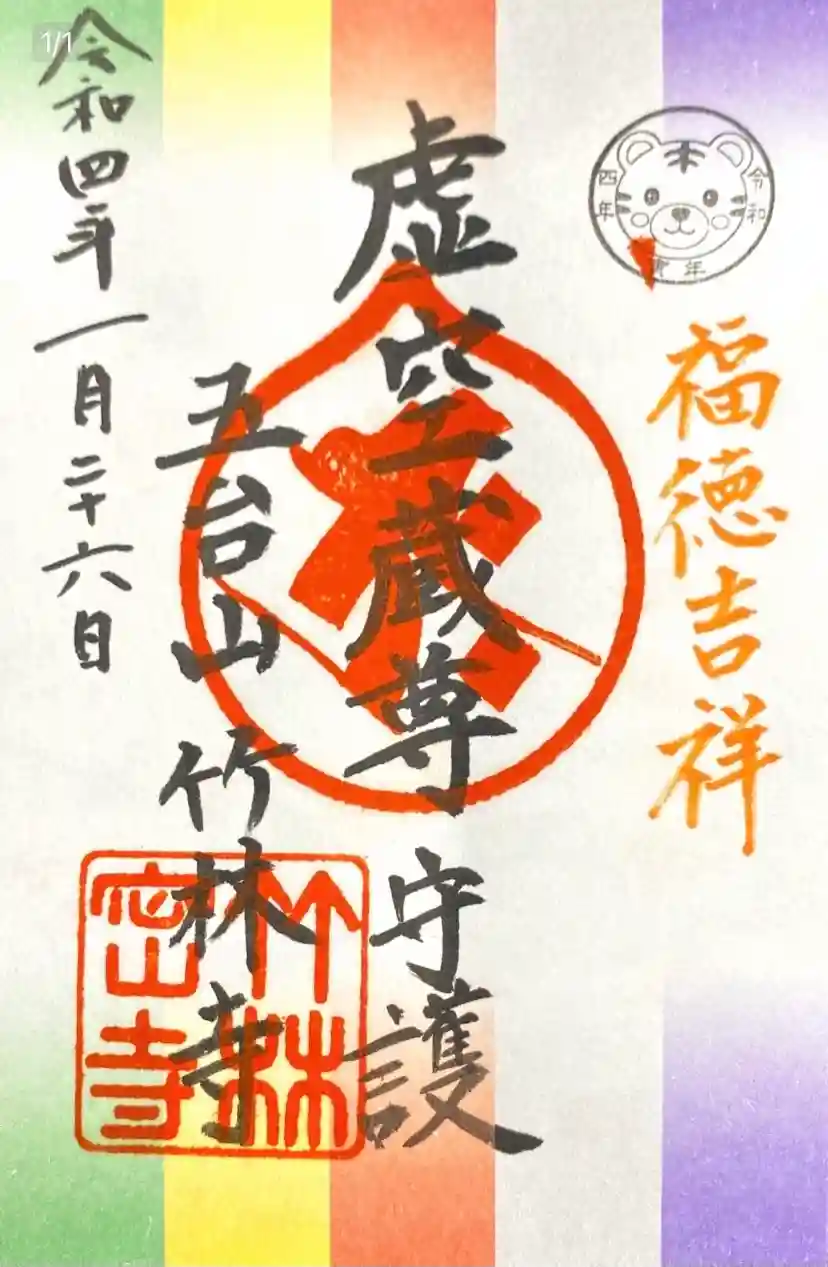 1/1
令和 四年 寅年
福徳吉祥
虚空蔵尊 守護
五台山 竹林寺
竹林密寺
令和四年一月二十六日